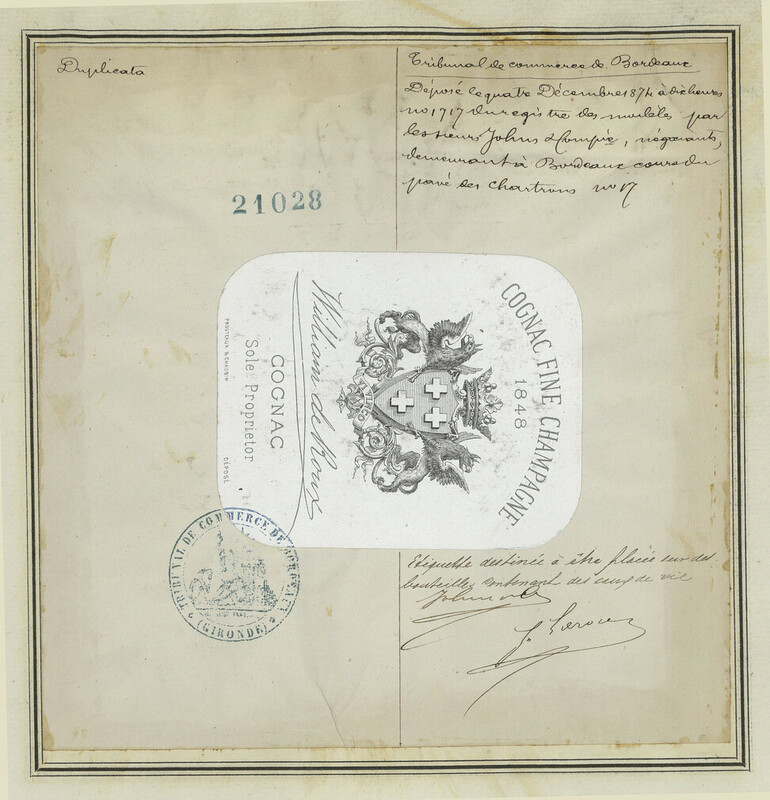 Duplicata
Tribunal de commerce de Bordeaux
Déposé le quatre Décembre 1874 à dix heures
no 1717 du registre des modèles par
les sieurs Johns & Compie, négociants,
demeurant à Bordeaux cours du
pavé des Chartrons no 17
21028
COGNAC FINE CHAMPAGNE
1848
William de Roux
COGNAC
Sole Proprietor
DÉPOSÉ
TRIBUNAL DE COMMERCE DE BORDEAUX
(GIRONDE)
Etiquette destinée à être placée sur des
bouteilles contenant des eaux de vie